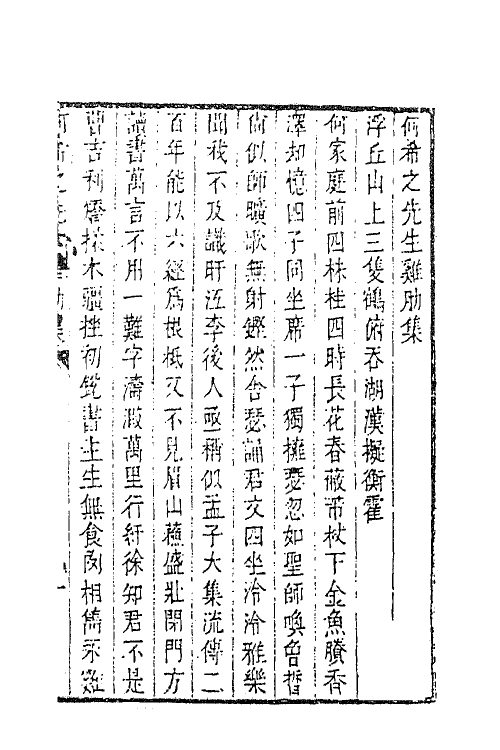 何希之先生雞肋集
浮丘山上三隻鶴俯吞湖漢擬衡霍
何家庭前四株桂四時長花春蔽芾杖下金魚賸香
澤却憶四子同坐席一子獨擁瑟忽如聖師喚曾晳
尚似師曠歌無射鏗然舍瑟誦君文四坐泠泠雅樂
聞我不及識盱江李後人亟稱似孟子大集流傳二
百年能以六經爲根柢又不見眉山蘓盛壯閉門方
讀書萬言不用一難字濤瀾萬里行紆徐知君不是
曹吉利 木彊挫初 書生生無食肉相雋永雞